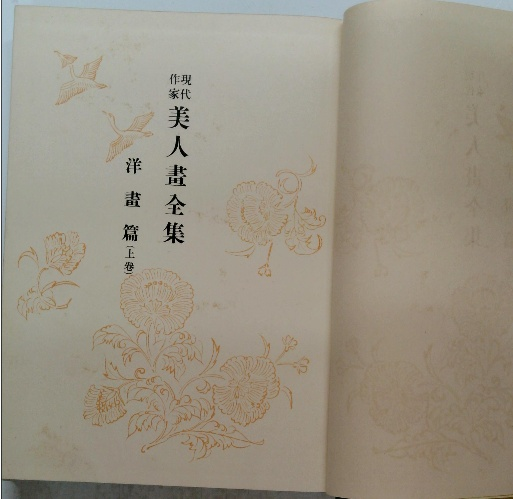 現代
作家
美人畫全集
洋畫篇(上卷)